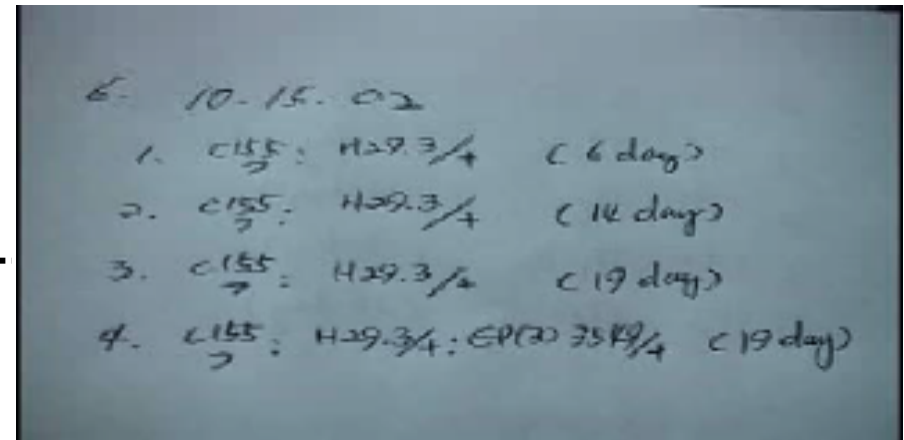 6. 10-15-02
1. C155/7; H29.3/+ (6 day)
2. C155/7; H29.3/+ (14 day)
3. C155/7; H29.3/+ (19 day)
4. C155/7; H29.3/+; EP(2) /+ (19 day)